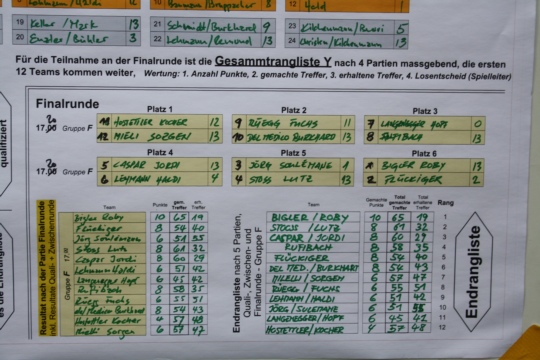 19 Keller / Mzsk 13
20 3
21 9
22 13
23 5
24 13
Für die Teilnahme an der Finalrunde ist die Gesammtrangliste Y nach 4 Partien massgebend, die ersten
12 Teams kommen weiter, Wertung: 1. Anzahl Punkte, 2. gemachte Treffer, 3. erhaltene Treffer, 4. Losentscheid (Spielleiter)
qualifiziert
Finalrunde
Platz 1 Platz 2 Platz 3
Gruppe F
HOSTETTLER KOCHER 12
12 MIELI SORGEN 13
9 RÜEGG FUCHS 11
10 DEL MEDICO BURKHARD 13
7 LANGENEGGER HOPF 0
8 RUFIBACH 13
Platz 4 Platz 5 Platz 6
Gruppe F
5 CASPAR JORDI 13
6 LEHMANN HALDI 4
3 JÖRG 1
4 STOSS LUTZ 13
1 BIGLER ROBY 13
2 FLÜCKIGER 2
Resultat nach der Partie Finalrunde
inkl. Resultate Quali- + Zwischenrunde
Gruppe F
Team Punkte gem. Treffer erh. Treffer
Bigler Roby 10 65 19
Flückiger 8 54 40
Stoss Lutz 8 61 32
Caspar Jordi 8 60 29
Lehmann Haldi 6 51 42
Langenegger Hopf 6 45 42
Rufibach 8 58 35
Rüegg Fuchs 6 55 51
del Medico Burkhard 6 54 43
Hostettler Kocher 4 57 48
Mieli Sorgen 6 67 47
Endrangliste nach 5 Partien,
Quali-, Zwischen- und
Finalrunde - Gruppe F
Team Gemachte Punkte Total gemachte Treffer Total erhaltene Treffer Rang
BIGLER / ROBY 10 65 19 1
STOSS / LUTZ 8 61 32 2
CASPAR / JORDI 8 60 29 3
RUFIBACH 8 58 35 4
FLÜCKIGER 8 54 40 5
DEL MED. / BURKHART 6 54 43 6
MIELI / SORGEN 6 67 47 7
RÜEGG / FUCHS 6 55 51 8
LEHMANN / HALDI 6 51 42 9
JÖRG / 6 51 10
LANGENEGGER / HOPF 6 45 42 11
HOSTETTLER / KOCHER 4 57 48 12
Endrangliste